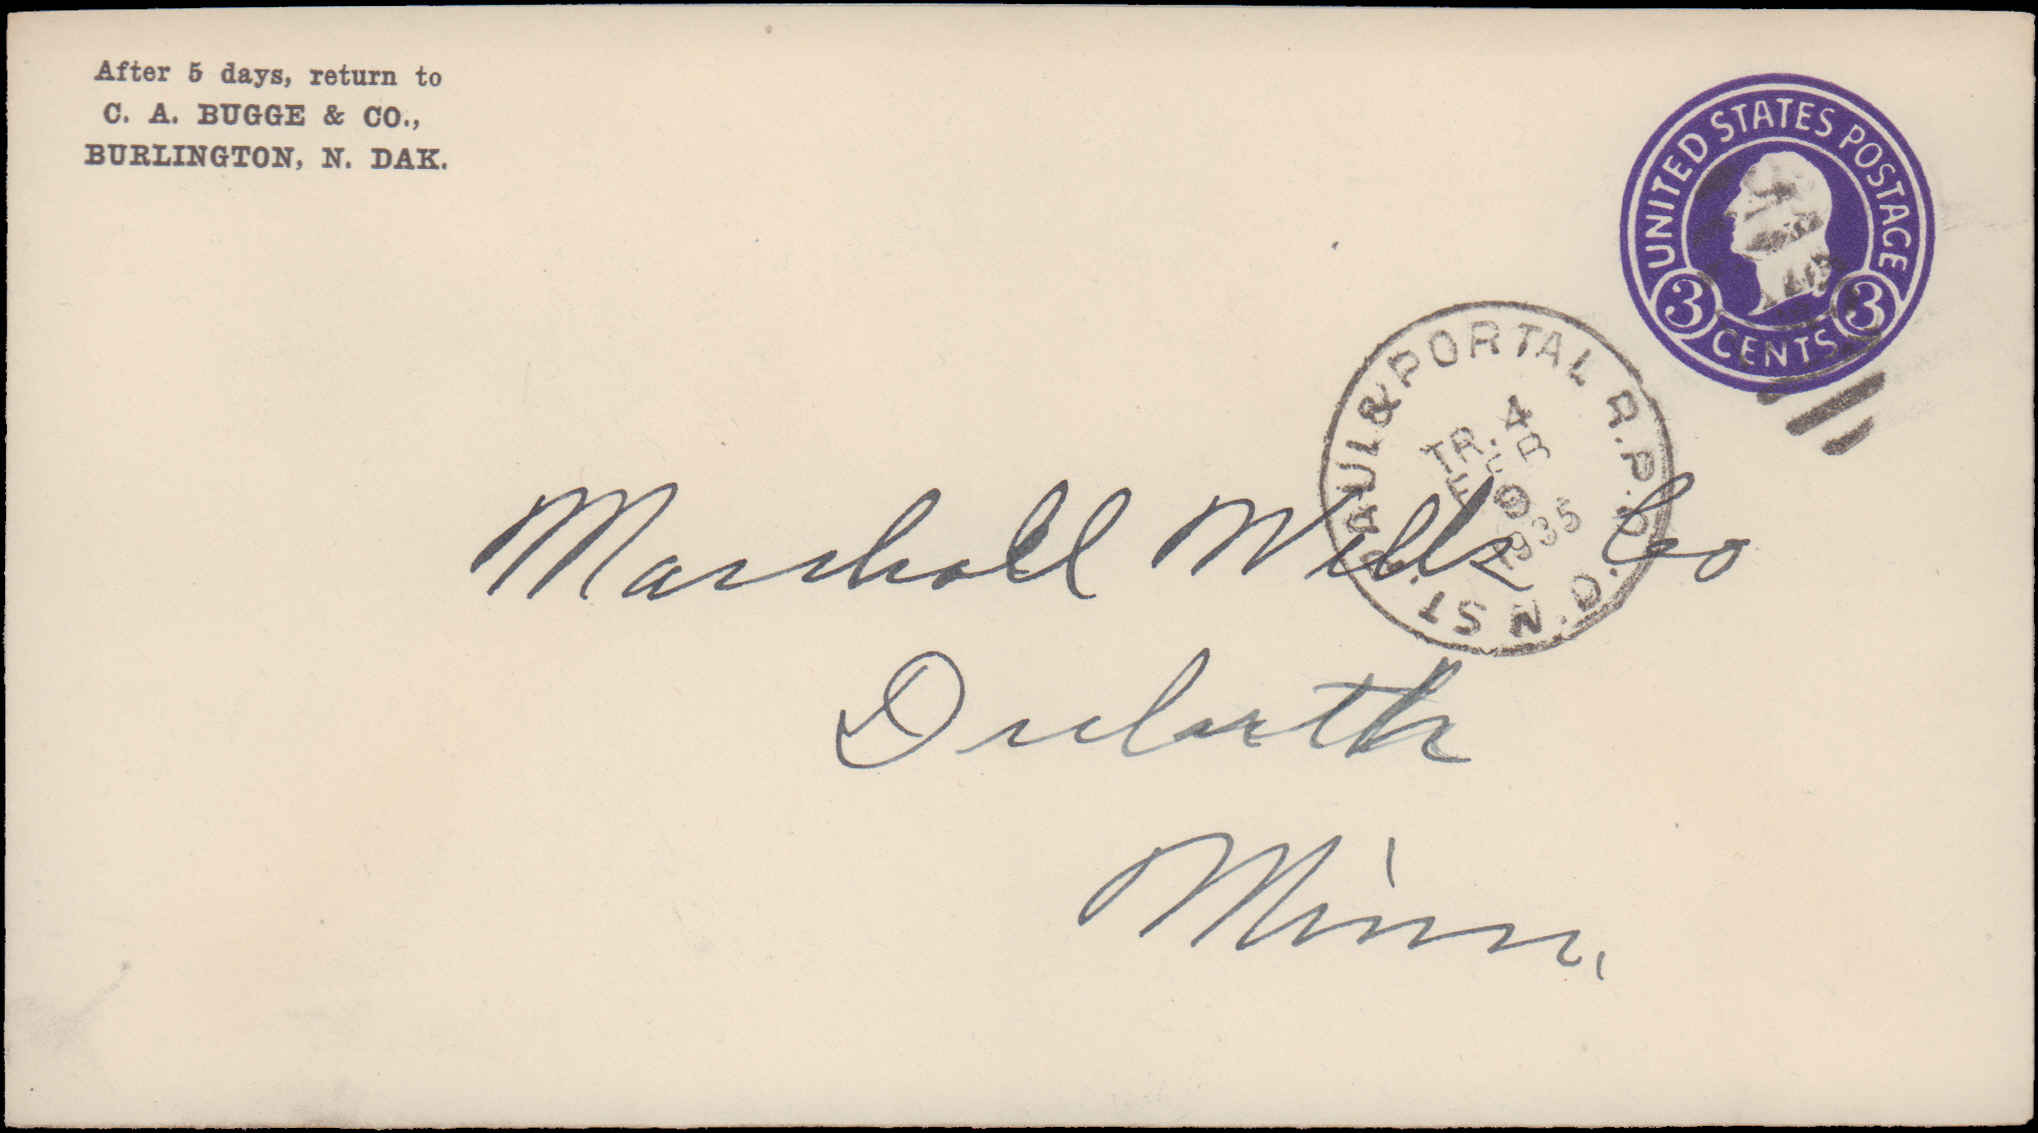 After 5 days, return to
C. A. BUGGE & CO.,
BURLINGTON, N. DAK.
UNITED STATES POSTAGE
3 CENTS 3
ST. PAUL & PORTAL R.P.O.
TR. 4
FEB
9
1935
Marshall Wells Co
Duluth
Minn.